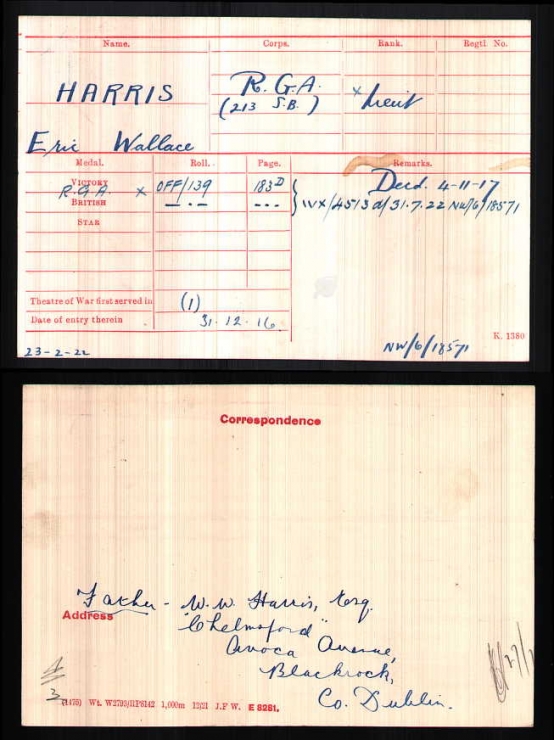 Name. Corps. Rank. Regtl. No.
HARRIS R.G.A. × Lieut
(213 S.B.)
Eric Wallace
Medal. Roll. Page. Remarks.
VICTORY R.G.A. × OFF/139 183D Decd. 4-11-17
BRITISH —·— --- } WX/4513 d/31.7.22 NW/6/18571
STAR
Theatre of War first served in (1)
Date of entry therein 31.12.16. K. 1380
23-2-22 NW/6/18571
Correspondence
Father - W.W. Harris, Esq.
Address "Chelmsford"
Avoca Avenue,
Blackrock,
Co. Dublin.
(1478) Wt. W2793/HP6142 1,000m 12/21 J.F.W. E 8281.